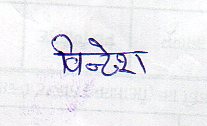 विन्देश